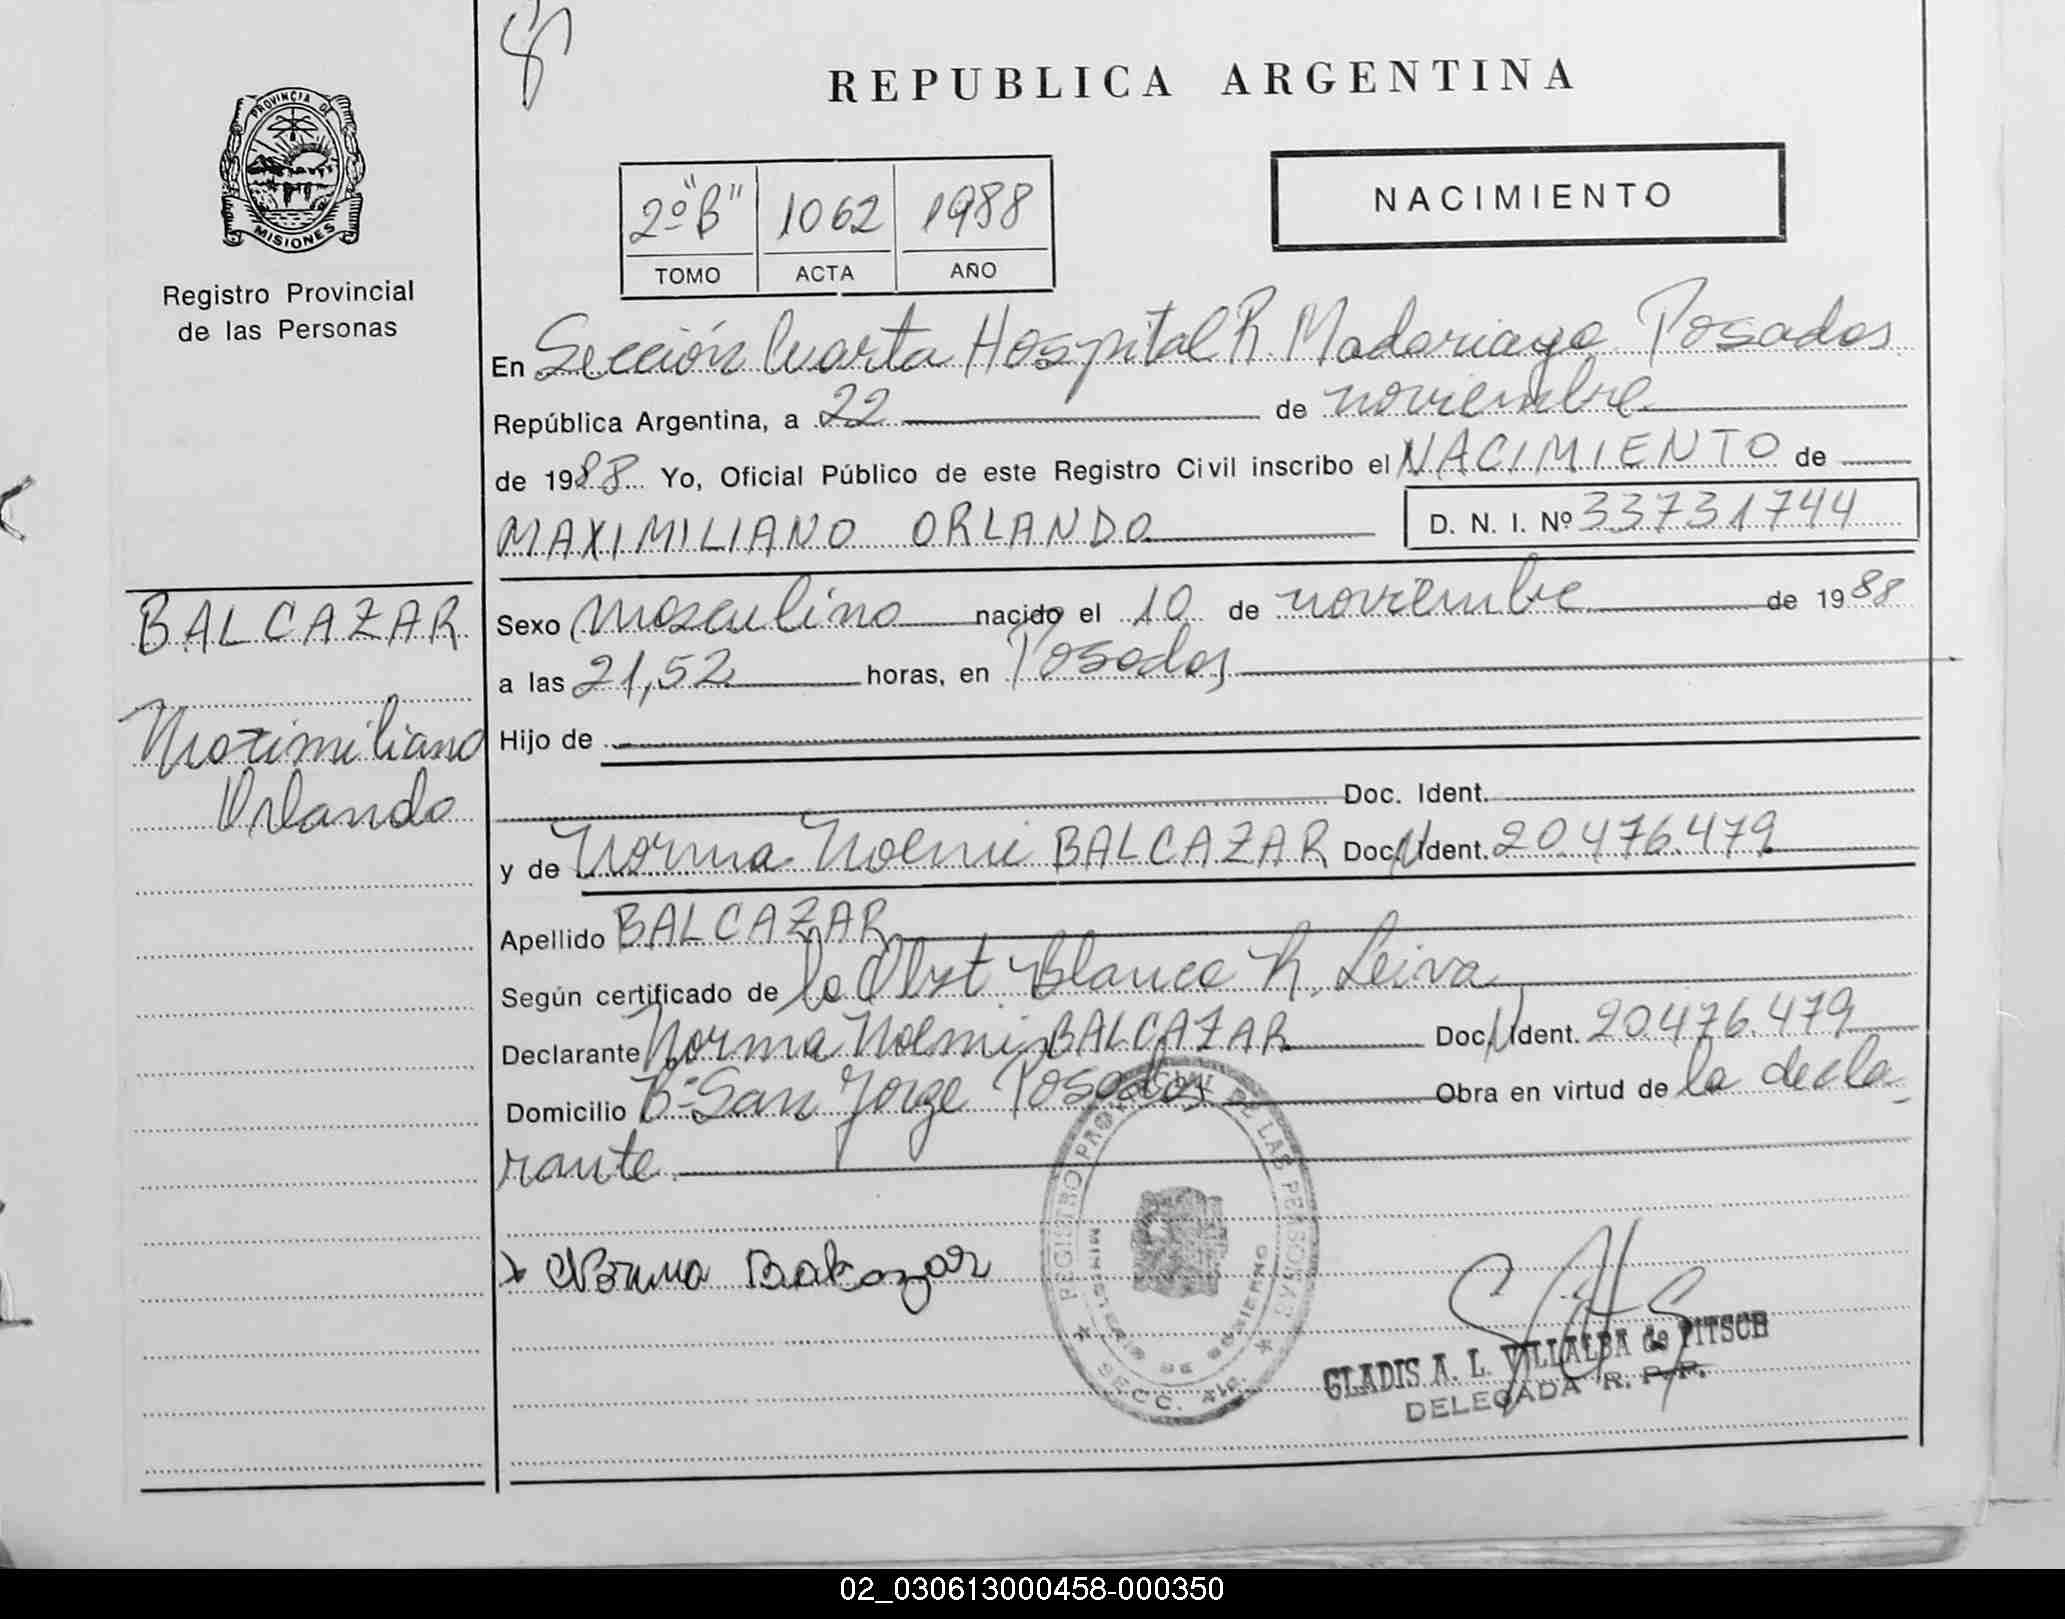 REPUBLICA ARGENTINA
PROVINCIA DE
MISIONES
Registro Provincial
de las Personas
2º "B" 1062 1988
TOMO ACTA AÑO
NACIMIENTO
En Sección Cuarta Hospital R. Madariaga Posadas
República Argentina, a 22 de noviembre
de 1988 Yo, Oficial Público de este Registro Civil inscribo el NACIMIENTO de
MAXIMILIANO ORLANDO D. N. I. Nº 33731744
BALCAZAR
Maximiliano
Orlando
Sexo Masculino nacido el 10 de noviembre de 1988
a las 21,52 horas, en Posadas
Hijo de
Doc. Ident.
y de Norma Noemi BALCAZAR Doc. Ident. 20.476.479
Apellido BALCAZAR
Según certificado de la Obst. Blanca R. Leiva
Declarante Norma Noemi BALCAZAR Doc. Ident. 20.476.479
Domicilio Bº San Jorge Posadas Obra en virtud de la decla
rante.
Norma Balcazar
REGISTRO PROVINCIAL DE LAS PERSONAS
MINISTERIO DE GOBIERNO
SECC. 4ta.
GLADIS A. L. VILLALBA de PITSCH
DELEGADA R. P. P.
02_030613000458-000350